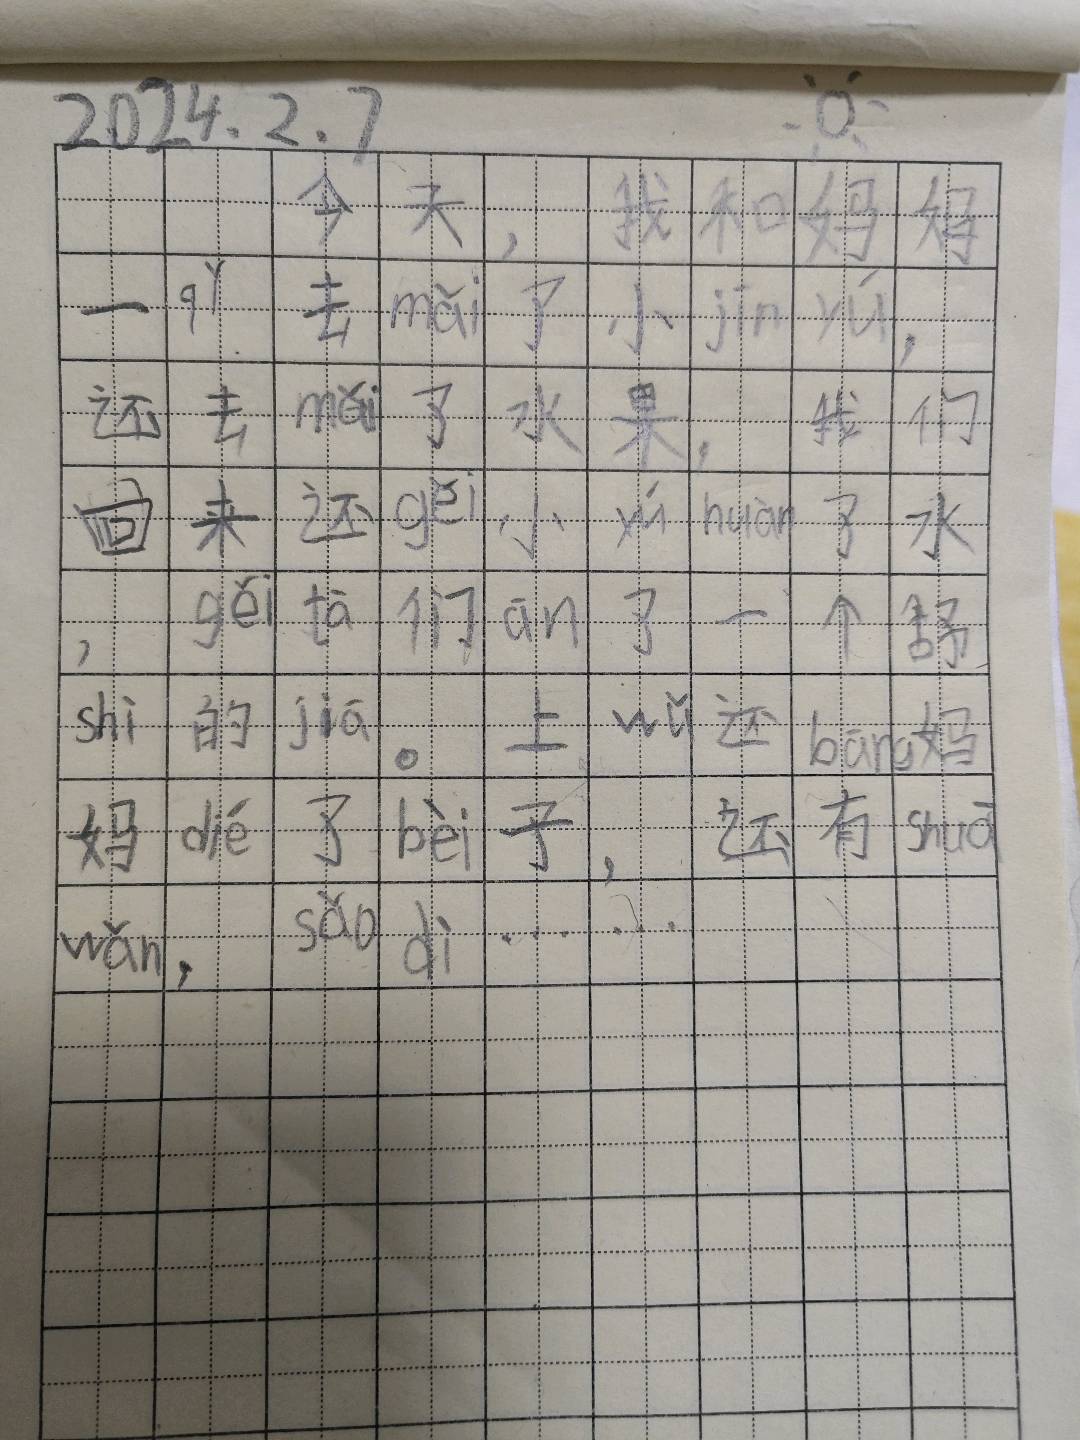 2024.2.7
今天，我和妈妈
一qǐ去mǎi了小jīn yú，
还去mǎi了水果，我们
回来还gěi小yú huàn了水
，gěi tā们ān了一个舒
shì的jiā。上wǔ还bāng妈
妈dié了bèi子，还有shuā
wǎn，sǎo dì……